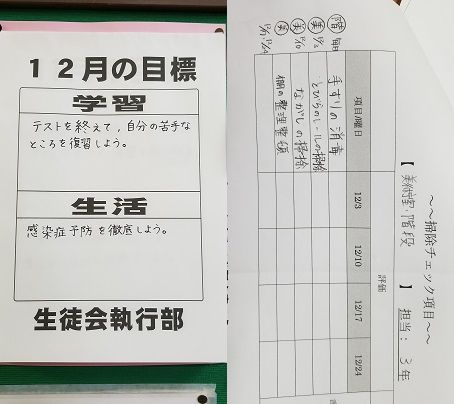 １２月の目標
学習
テストを終えて，自分の苦手な
ところを復習しよう。
生活
感染症予防を徹底しよう。
生徒会執行部
～～掃除チェック項目～～
【 美術室・階段 】 担当： ３年
項目/曜日
評価
12/3
12/10
12/17
12/24
手すりの消毒
とびらのレールの掃除
ながしの掃除
棚の整理整頓
階
美
美
美